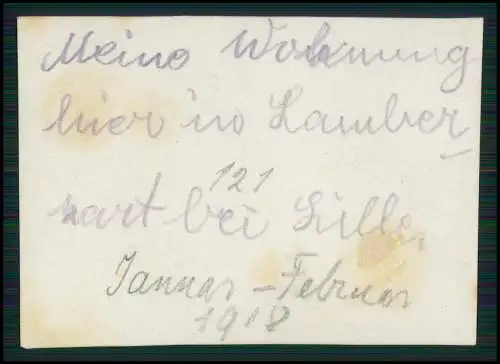 Meine Wohnung
hier in Lamber-
sart bei Lille.
121
Januar - Februar
1918